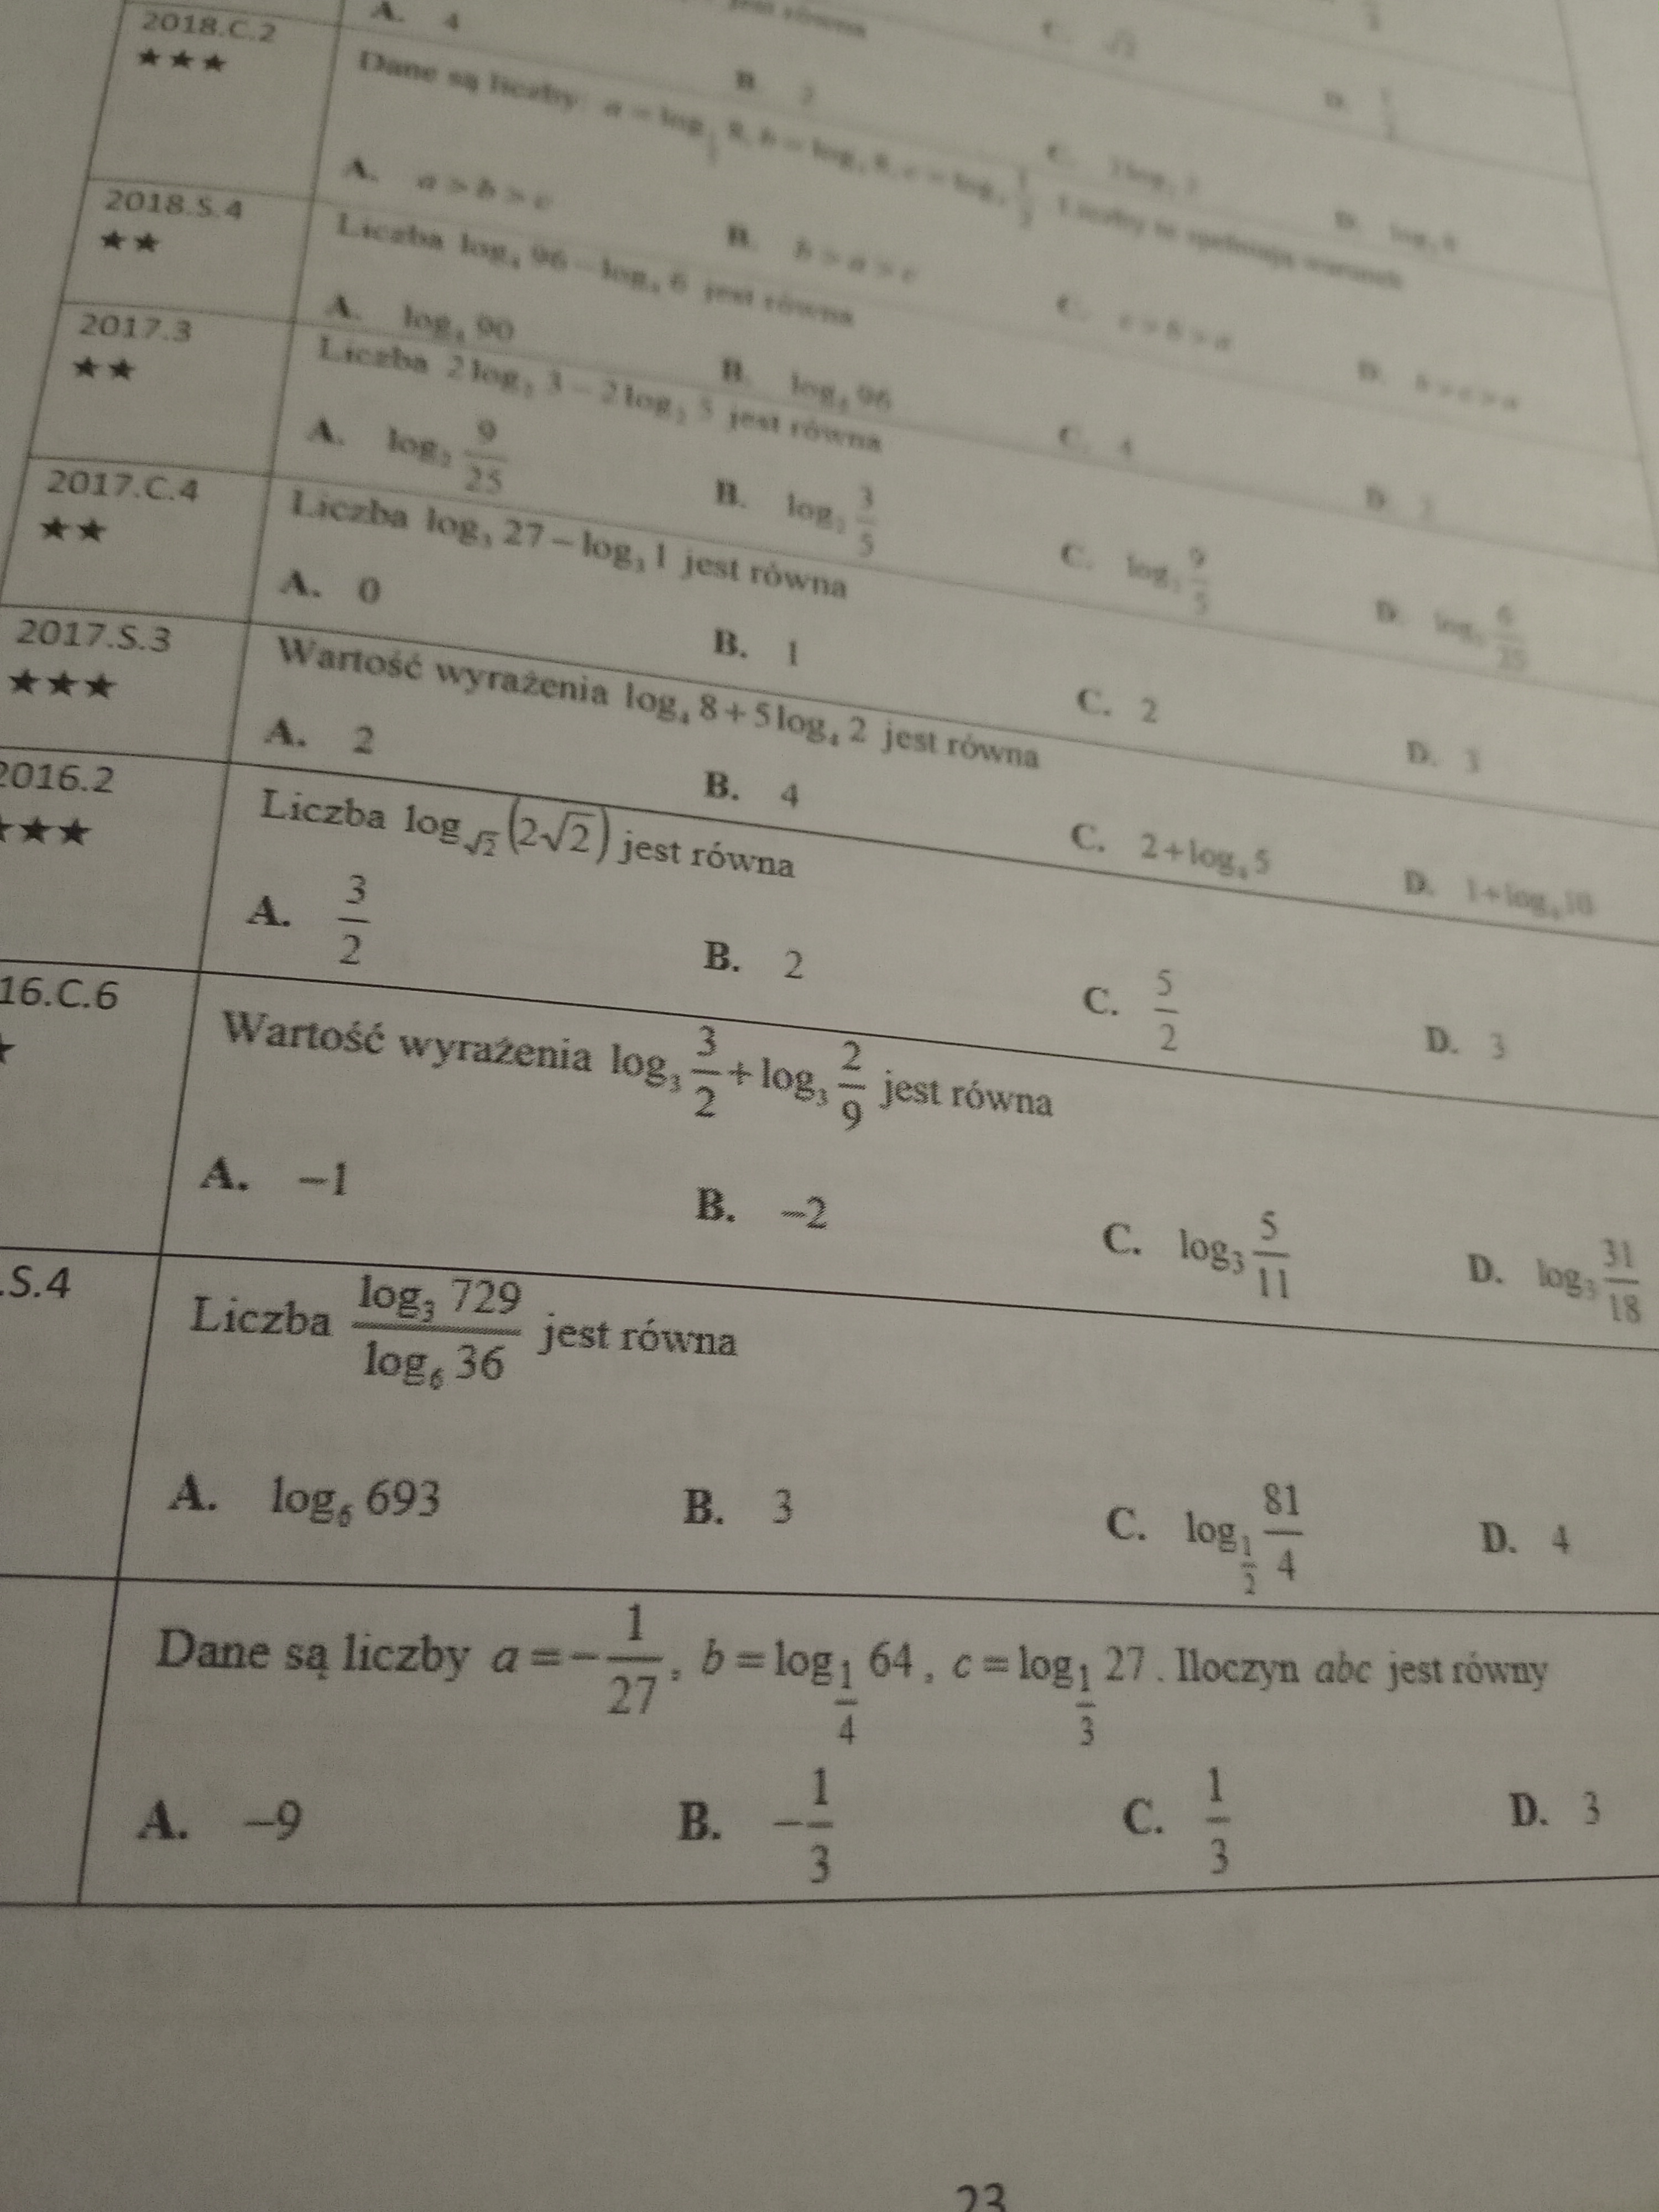 jest równa
A. 4
B. 2
C. √2
2018.C.2
★★★
Dane są liczby a = log_{1/2} 8, b = log₄ 8, c = log₄ 1/2. Liczby te spełniają warunek
A. a > b > c
B. b > a > c
C. c > b > a
D. b > c > a
2018.S.4
★★
Liczba log₄ 96 − log₄ 6 jest równa
A. log₄ 90
B. log₆ 96
C. 4
D. 2
2017.3
★★
Liczba 2 log₂ 3 − 2 log₂ 5 jest równa
A. log₂ 9/25
B. log₂ 3/5
C. log₂ 9/5
D. log₂ 6/25
2017.C.4
★★
Liczba log₃ 27 − log₃ 1 jest równa
A. 0
B. 1
C. 2
D. 3
2017.S.3
★★★
Wartość wyrażenia log₄ 8 + 5 log₄ 2 jest równa
A. 2
B. 4
C. 2 + log₄ 5
D. 1 + log₄ 10
2016.2
★★★
Liczba log_{√2} (2√2) jest równa
A. 3/2
B. 2
C. 5/2
D. 3
16.C.6
★
Wartość wyrażenia log₃ 3/2 + log₃ 2/9 jest równa
A. −1
B. −2
C. log₃ 5/11
D. log₃ 31/18
.S.4
Liczba log₃ 729 / log₆ 36 jest równa
A. log₆ 693
B. 3
C. log_{1/2} 81/4
D. 4
Dane są liczby a = −1/27, b = log_{1/4} 64, c = log_{1/3} 27. Iloczyn abc jest równy
A. −9
B. −1/3
C. 1/3
D. 3
23